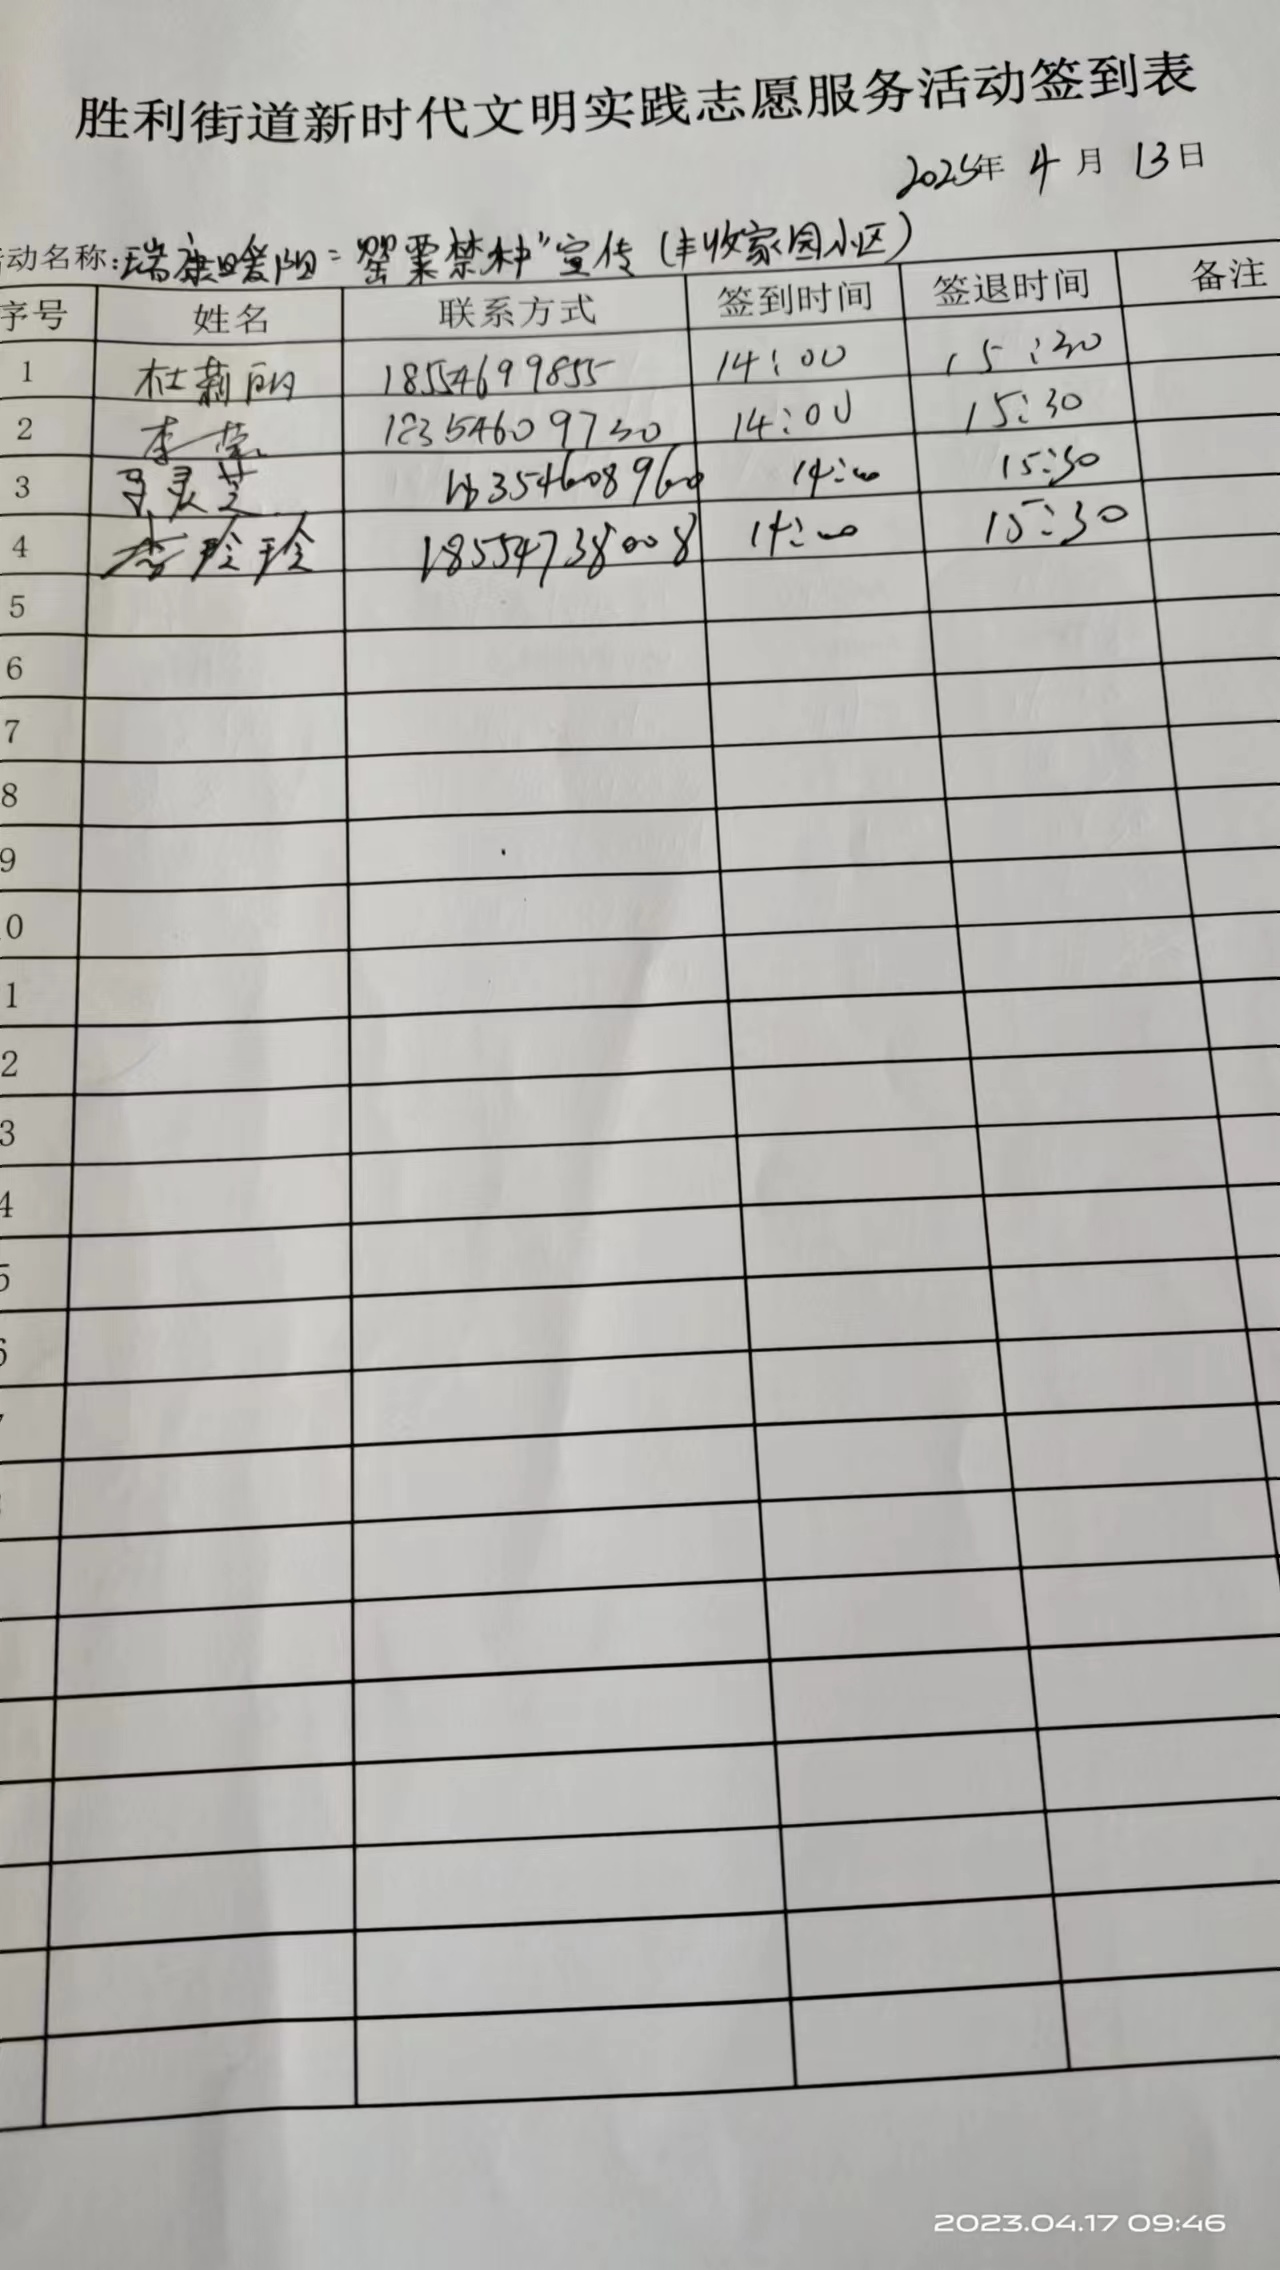 胜利街道新时代文明实践志愿服务活动签到表
2023年 4 月 13日
动名称:瑞康暖阳="罂粟禁种"宣传(丰收家园小区)
序号 姓名 联系方式 签到时间 签退时间 备注
1 杜莉丽 18554699855 14:00 15:30
2 李荣 14:00 15:30
3 灵芝 14:00 15:30
4 李玲玲 18554738008 14:00 15:30
5
6
7
8
9
0
1
2
3
4
5
6
2023.04.17 09:46